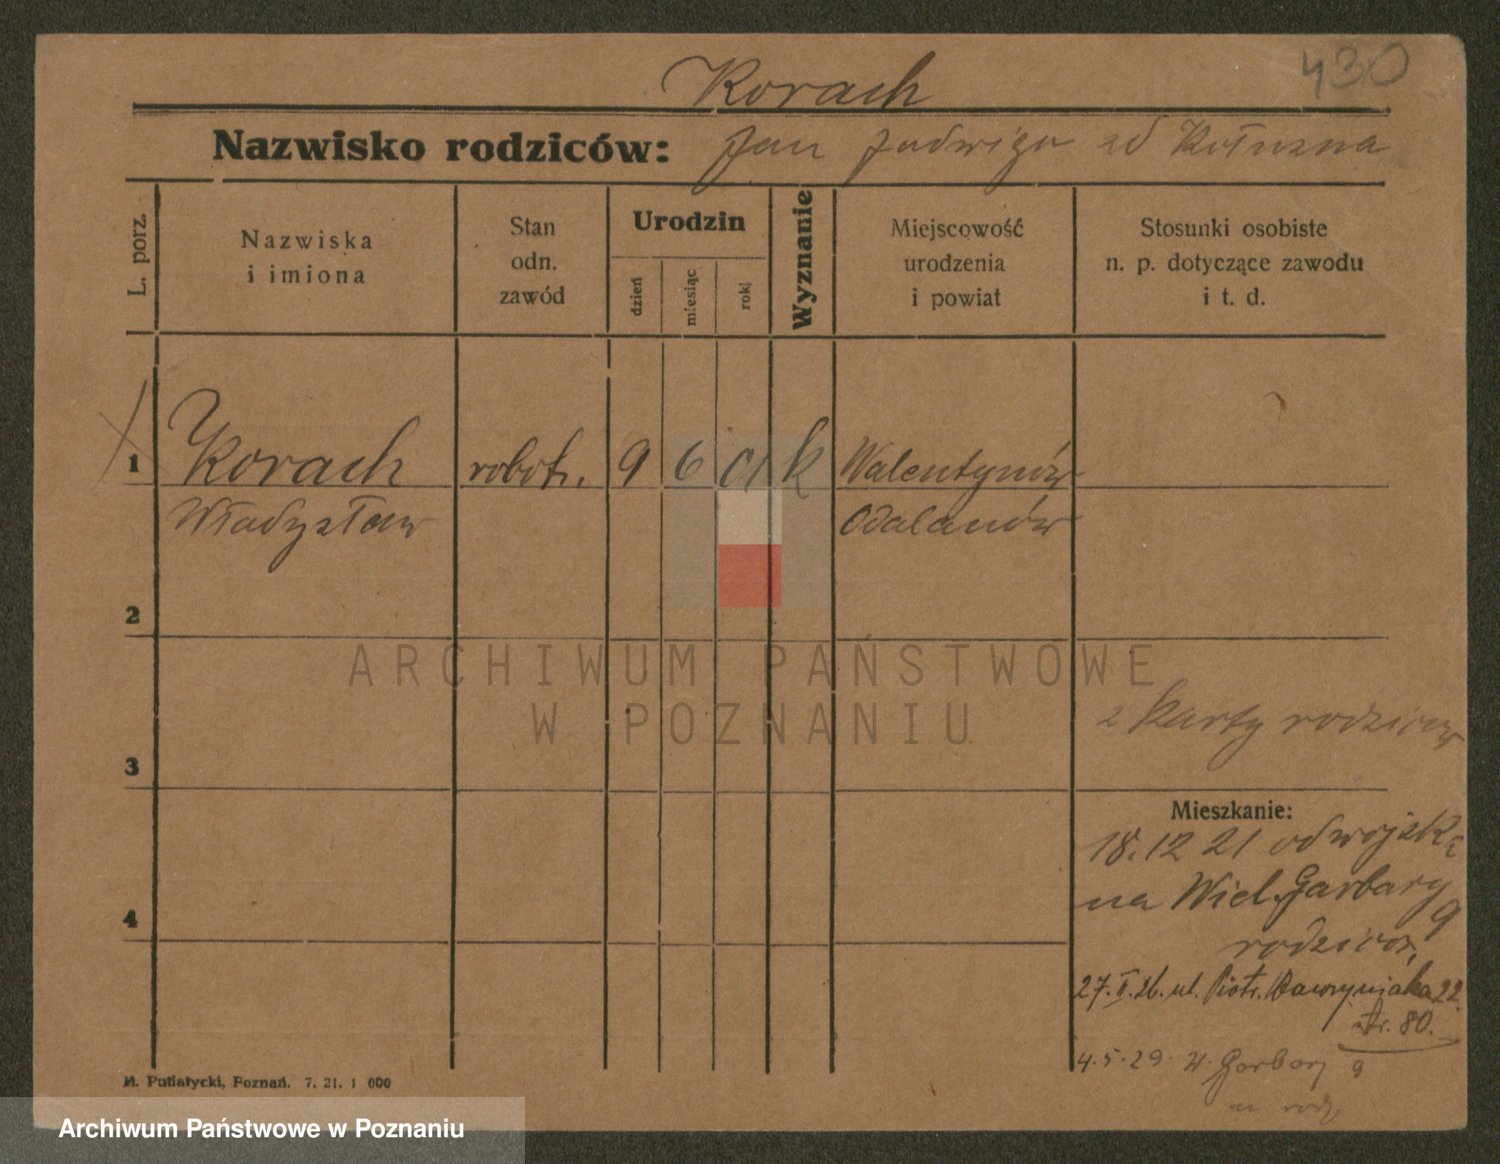 430
Korach
Nazwisko rodziców: Jan Jadwiga zd
L. porz.
Nazwiska
i imiona
Stan
odn.
zawód
Urodzin
dzień
miesiąc
rok
Wyznanie
Miejscowość
urodzenia
i powiat
Stosunki osobiste
n. p. dotyczące zawodu
i t. d.
1 Korach robotn. 9 6 01 k Walentynów
Władysław Odalanów
2
ARCHIWUM PAŃSTWOWE
W POZNANIU
z karty rodziców
3
Mieszkanie:
18.12 21 od wojska
na Wiel. Garbary 9
rodziców,
4
27.II.26. ul. Piotr. 22.
80.
4.5.29 W. Garbary 9
u rodz,
M. Putiatycki, Poznań. 7. 21. 1 000
Archiwum Państwowe w Poznaniu